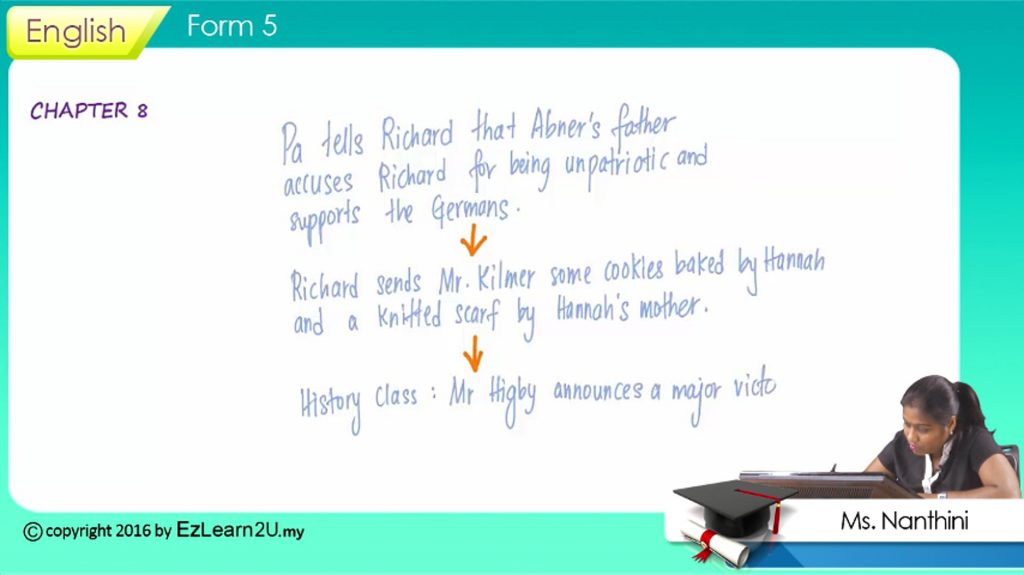 English
Form 5
CHAPTER 8
Pa tells Richard that Abner's father
accuses Richard for being unpatriotic and
supports the Germans.
Richard sends Mr. Kilmer some cookies baked by Hannah
and a knitted scarf by Hannah's mother.
History class : Mr Higby announces a major victo
© copyright 2016 by EzLearn2U.my
Ms. Nanthini